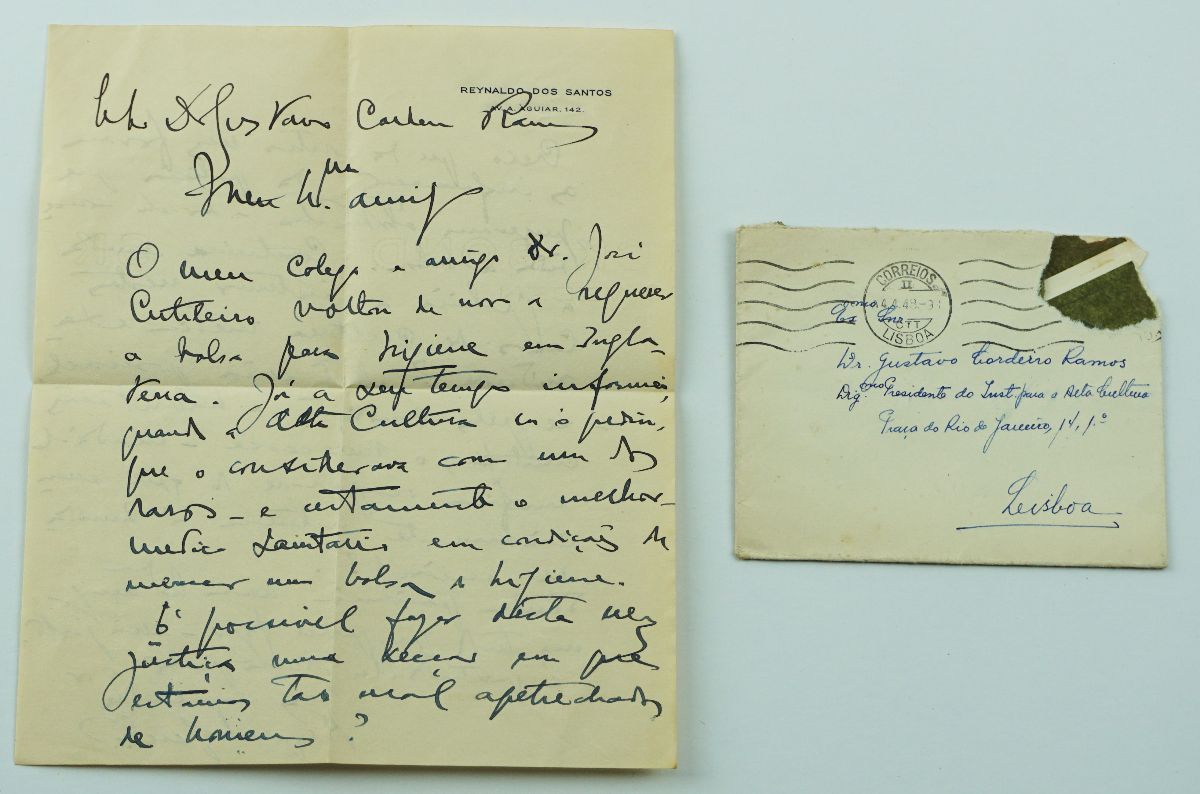 REYNALDO DOS SANTOS
AV. A. AGUIAR, 142.
Dr Gustavo Cordeiro Ramos
Meu amigo
O meu colega e amigo Dr. José
Cutileiro voltou de novo a requerer
a bolsa para higiene em Ingla-
terra. Já a seu tempo informei,
quando a Alta Cultura m'o pediu,
que o considerava como um dos
raros - e certamente o melhor -
medico sanitario em condições de
merecer uma bolsa de higiene.
É possivel fazer desta vez
justiça numa secção em que
estamos tão mal apetrechados
de homens?
CORREIOS
II
4.4.49
CTT
LISBOA
Exmo Snr.
Dr. Gustavo Cordeiro Ramos
Digmo Presidente do Inst. para a Alta Cultura
Praça do Rio de Janeiro, 14, 1.º
Lisboa